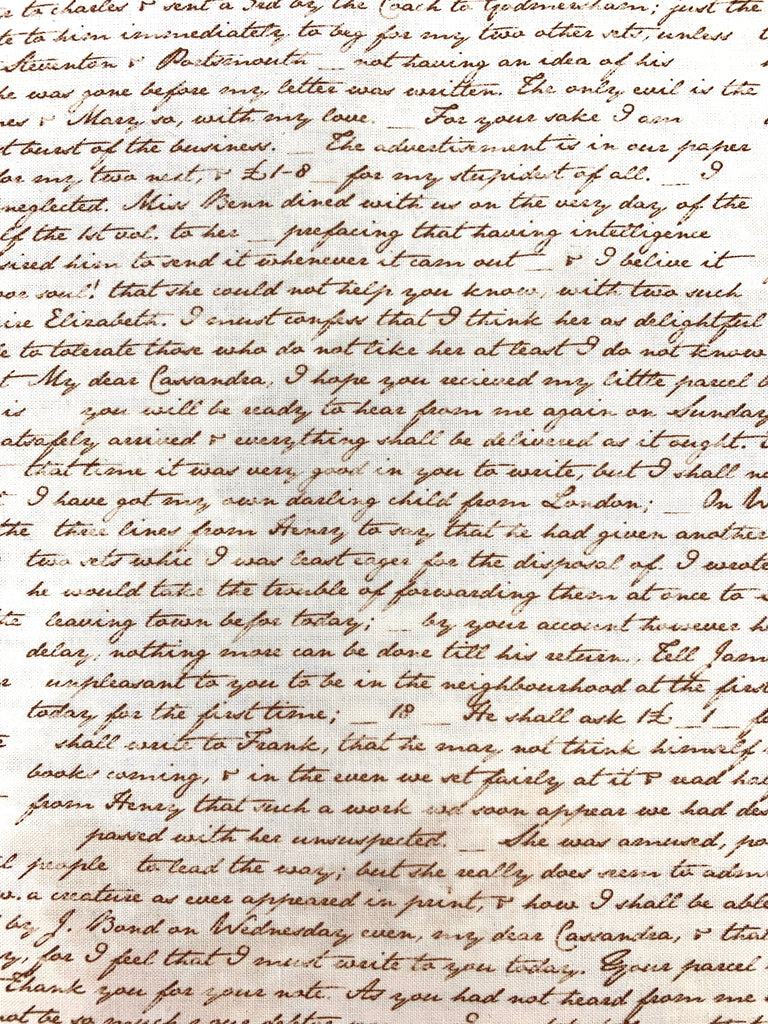 to charles & sent a 3rd by the Coach to Godmersham; just the
te to him immediately to beg for my two other sets, unless
Steventon & Portsmouth _ not having an idea of his
he was gone before my letter was written. The only evil is the
nes & Mary so, with my love. _ For your sake I am
t burst of the business. _ The advertisment is in our paper
for my two next, & £1-8 _ for my stupidest of all. _ I
neglected. Miss Benn dined with us on the very day of the
lf the 1st vol. to her _ prefacing that having intelligence
sired him to send it whenever it cam out _ & I belive it
oor soul! that she could not help you know, with two such
ire Elizabeth. I must confess that I think her as delightful
le to tolerate those who do not like her at least I do not know
t My dear Cassandra, I hope you recieved my little parcel b
is you will be ready to hear from me again on Sunday
atsafely arrived & everything shall be delivered as it ought.
that time it was very good in you to write, but I shall no
I have got my own darling child from London; _ On W
the three lines from Henry to say that he had given another
two sets whic I was least eager for the disposal of. I wrote
he would take the trouble of forwarding them at once to
leaving town befor today; _ by your account however h
delay, nothing more can be done till his return., Tell Jam
r unpleasant to you to be in the neighbourhood at the first
today for the first time; _ 18 _ He shall ask 1£ _ 1 _ fo
shall write to Frank, that he may not think himself
books coming, & in the even we set fairly at it & read hal
from Henry that such a work wd soon appear we had des
passed with her unsuspected. _ She was amused, po
l people to lead the way; but she really does seem to admi
w. a creature as ever appeared in print, & how I shall be able
by J. Bond on Wednesday even, my dear Cassandra, & that
y, for I feel that I must write to you today. Your parcel
Thank you for your note. As you had not heard from me
not be so much your debtor